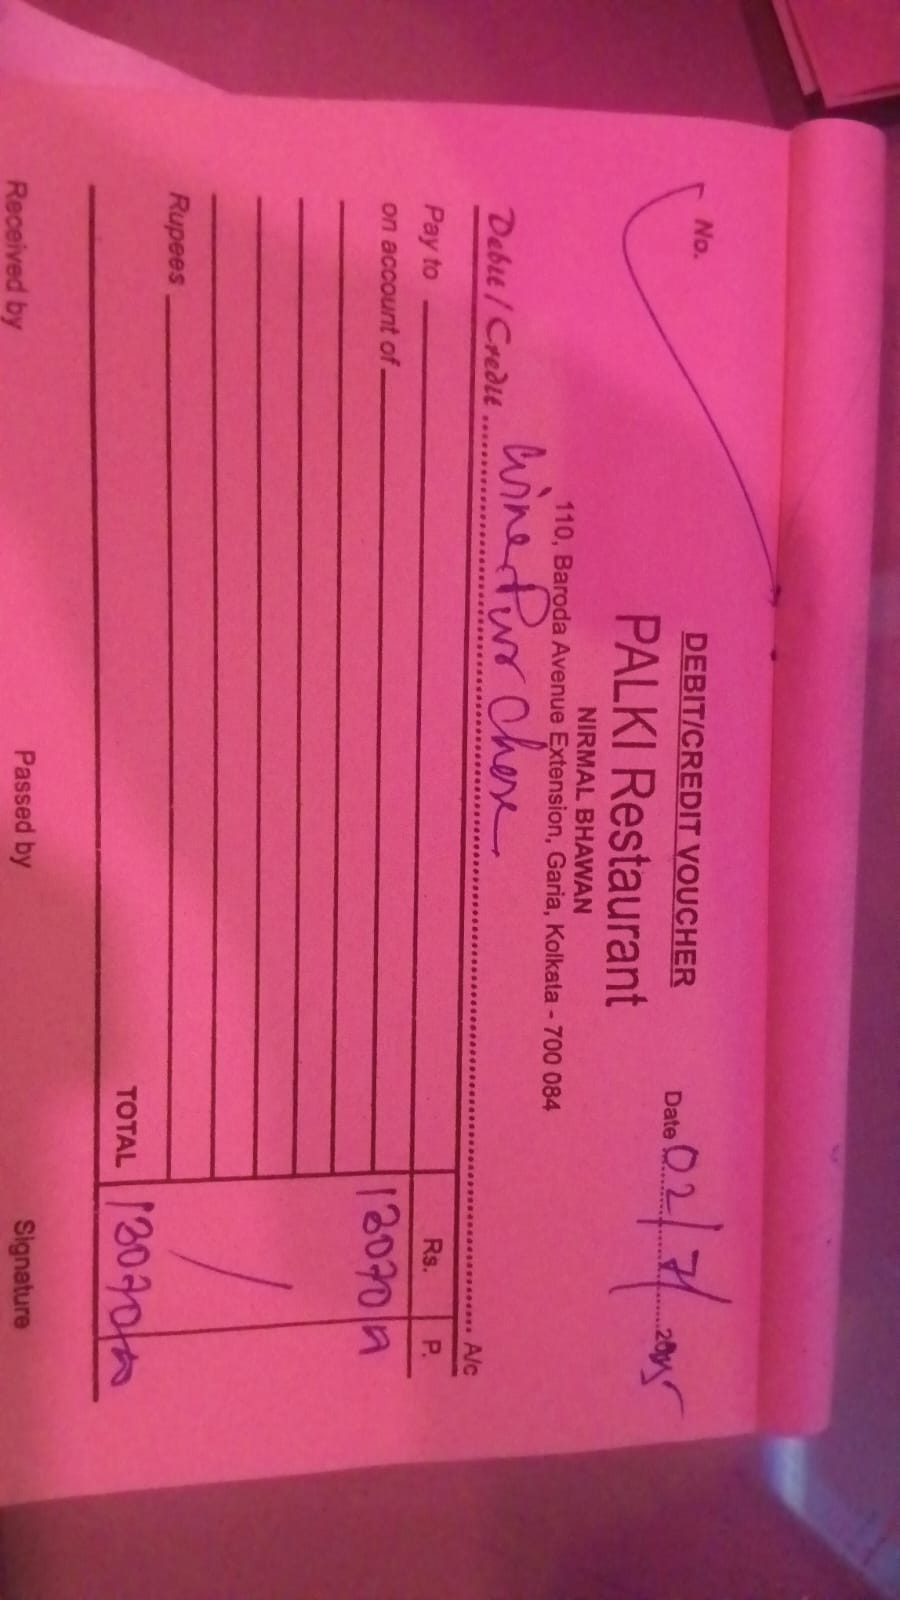 DEBIT/CREDIT VOUCHER
No.
Date 02/7/2025
PALKI Restaurant
NIRMAL BHAWAN
110, Baroda Avenue Extension, Garia, Kolkata - 700 084
Debit / Credit Wine Purchase A/c
Pay to Rs. P.
on account of 13070
Rupees
TOTAL 13070
Received by Passed by Signature